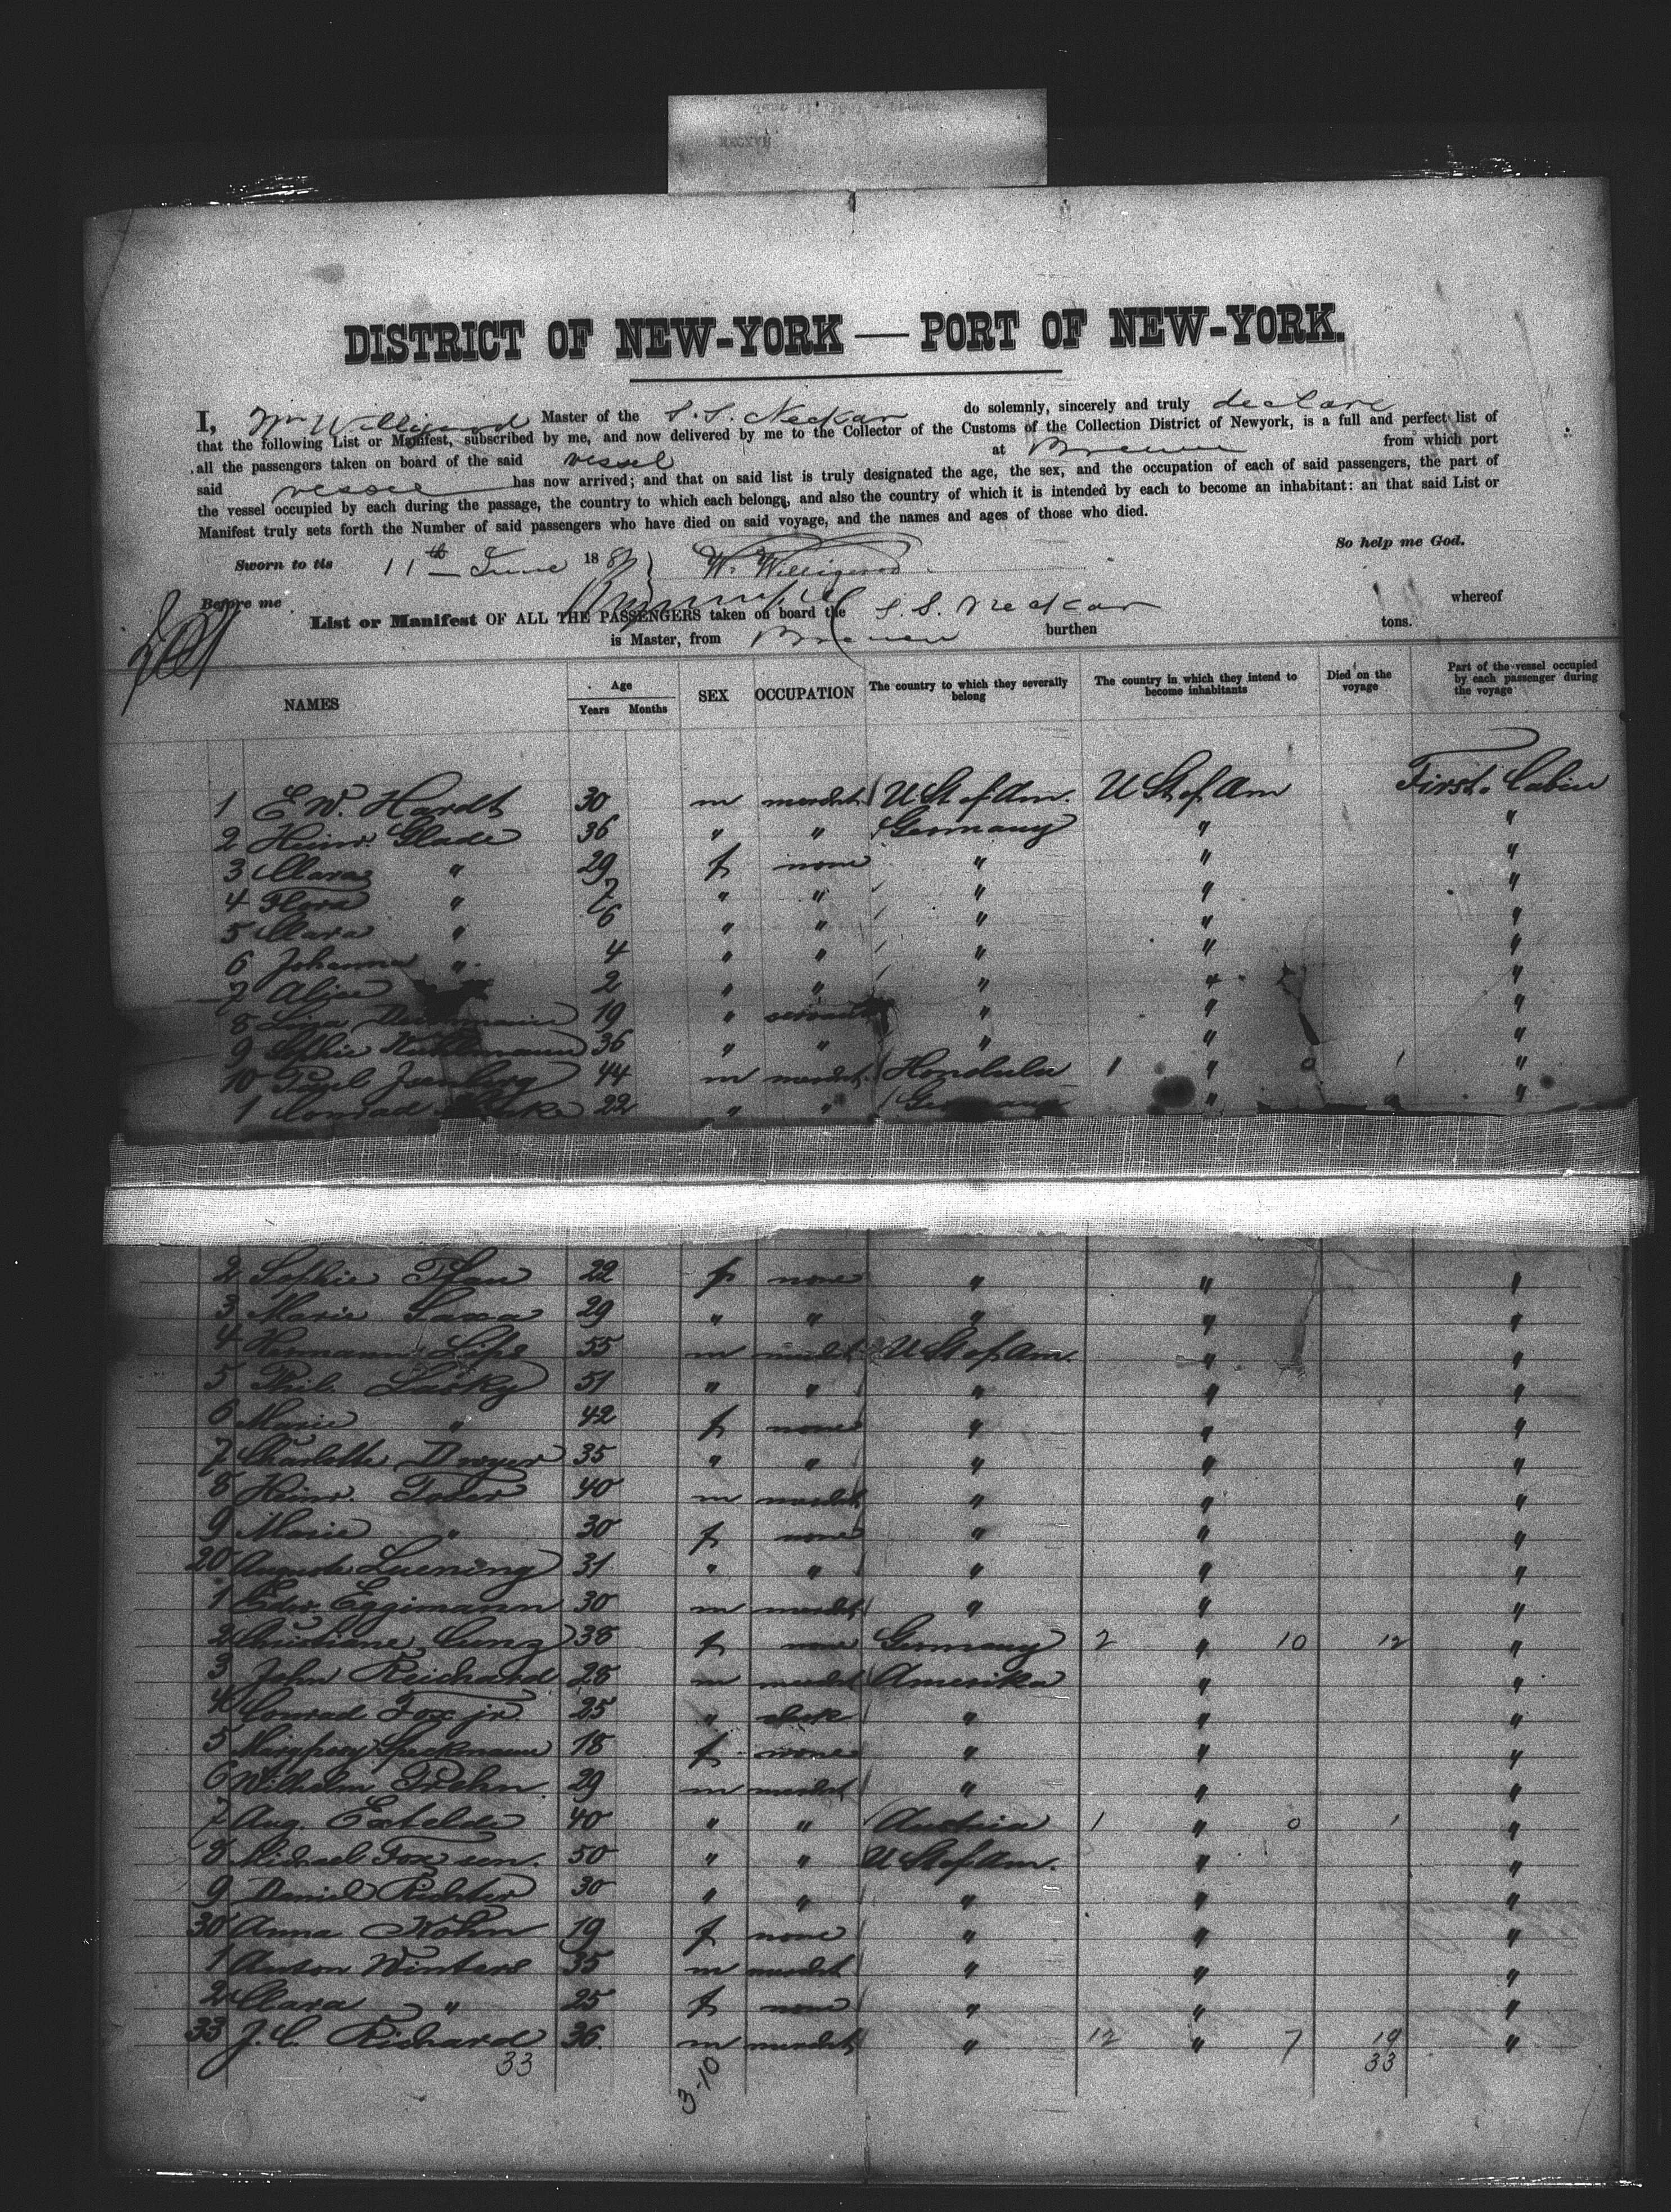 DISTRICT OF NEW-YORK — PORT OF NEW-YORK.
I, Wm Willigerod Master of the S.S. Neckar do solemnly, sincerely and truly declare
that the following List or Manifest, subscribed by me, and now delivered by me to the Collector of the Customs of the Collection District of Newyork, is a full and perfect list of
all the passengers taken on board of the said vessel at Bremen from which port
said vessel has now arrived; and that on said list is truly designated the age, the sex, and the occupation of each of said passengers, the part of
the vessel occupied by each during the passage, the country to which each belongs, and also the country of which it is intended by each to become an inhabitant: an that said List or
Manifest truly sets forth the Number of said passengers who have died on said voyage, and the names and ages of those who died.
So help me God.
Sworn to tis 11th June 188 W. Willigerod
Before me
List or Manifest OF ALL THE PASSENGERS taken on board the S.S. Neckar whereof
is Master, from Bremen burthen tons.
NAMES Age Years Months SEX OCCUPATION The country to which they severally belong The country in which they intend to become inhabitants Died on the voyage Part of the vessel occupied by each passenger during the voyage
1 E.W. Hardt 30 m mercht U St of Am. U St of Am First Cabin
2 Heinr. Glade 36 " " Germany " "
3 Clara " 29 f none " " "
4 Flora " 7 " " " " "
5 Clara " 6 " " " " "
6 Johanna " 4 " " " " "
7 Alice 2 " " " " "
8 Lina 19 " servant " " "
9 Sophie 36 " " " " "
10 Paul Isenberg 44 m mercht. Honolulu 1 " 0 1 "
1 Conrad 22 " " Germany " "
2 Sophie Pfau 22 f none " " "
3 Marie Saxa 29 " " " " "
4 Hermann Lips 55 m mercht U St of Am. " "
5 Phil. Lasky 51 " " " " "
6 Marie " 42 f none " " "
7 Charlotte Dreyer 35 " " " " "
8 Heinr. Toser 40 m mercht " " "
9 Marie " 30 f none " " "
20 Auguste Luening 31 " " " " "
1 Edw. Eggimann 30 m mercht " " "
2 Christiane Cunz 38 f none Germany 2 " 10 12 "
3 John Reichard 28 m mercht Amerika " "
4 Conrad Fox jr. 25 " clerk " " "
5 Speckmann 18 f none " " "
6 Wilhelm Trehn 29 m mercht " " "
7 Aug. 40 " " Austria 1 " 0 1 "
8 Michael Fox sen. 50 " " U St of Am. " "
9 Daniel Richter 30 " " " " "
30 Anna Kohn 19 f none " " "
1 Anton Winters 35 m mercht " " "
2 Clara " 25 f none " " "
33 J.C. Richard 36 m mercht " 12 " 7 19 "
33 3-10 33